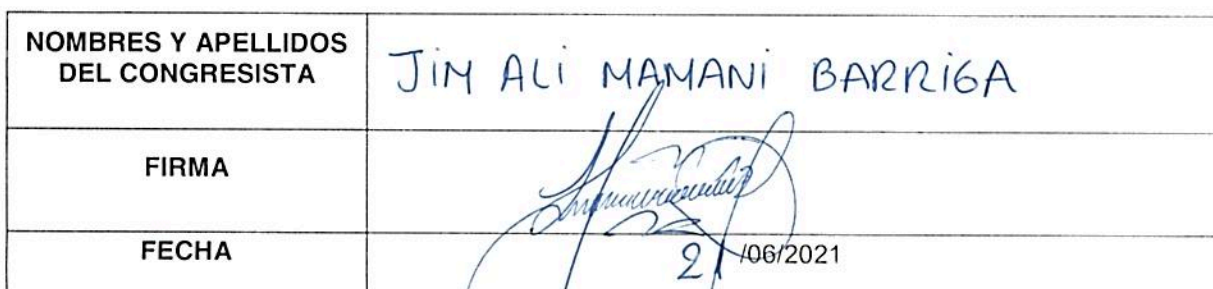 NOMBRES Y APELLIDOS
DEL CONGRESISTA
JIM ALI MAMANI BARRIGA
FIRMA
FECHA
21/06/2021